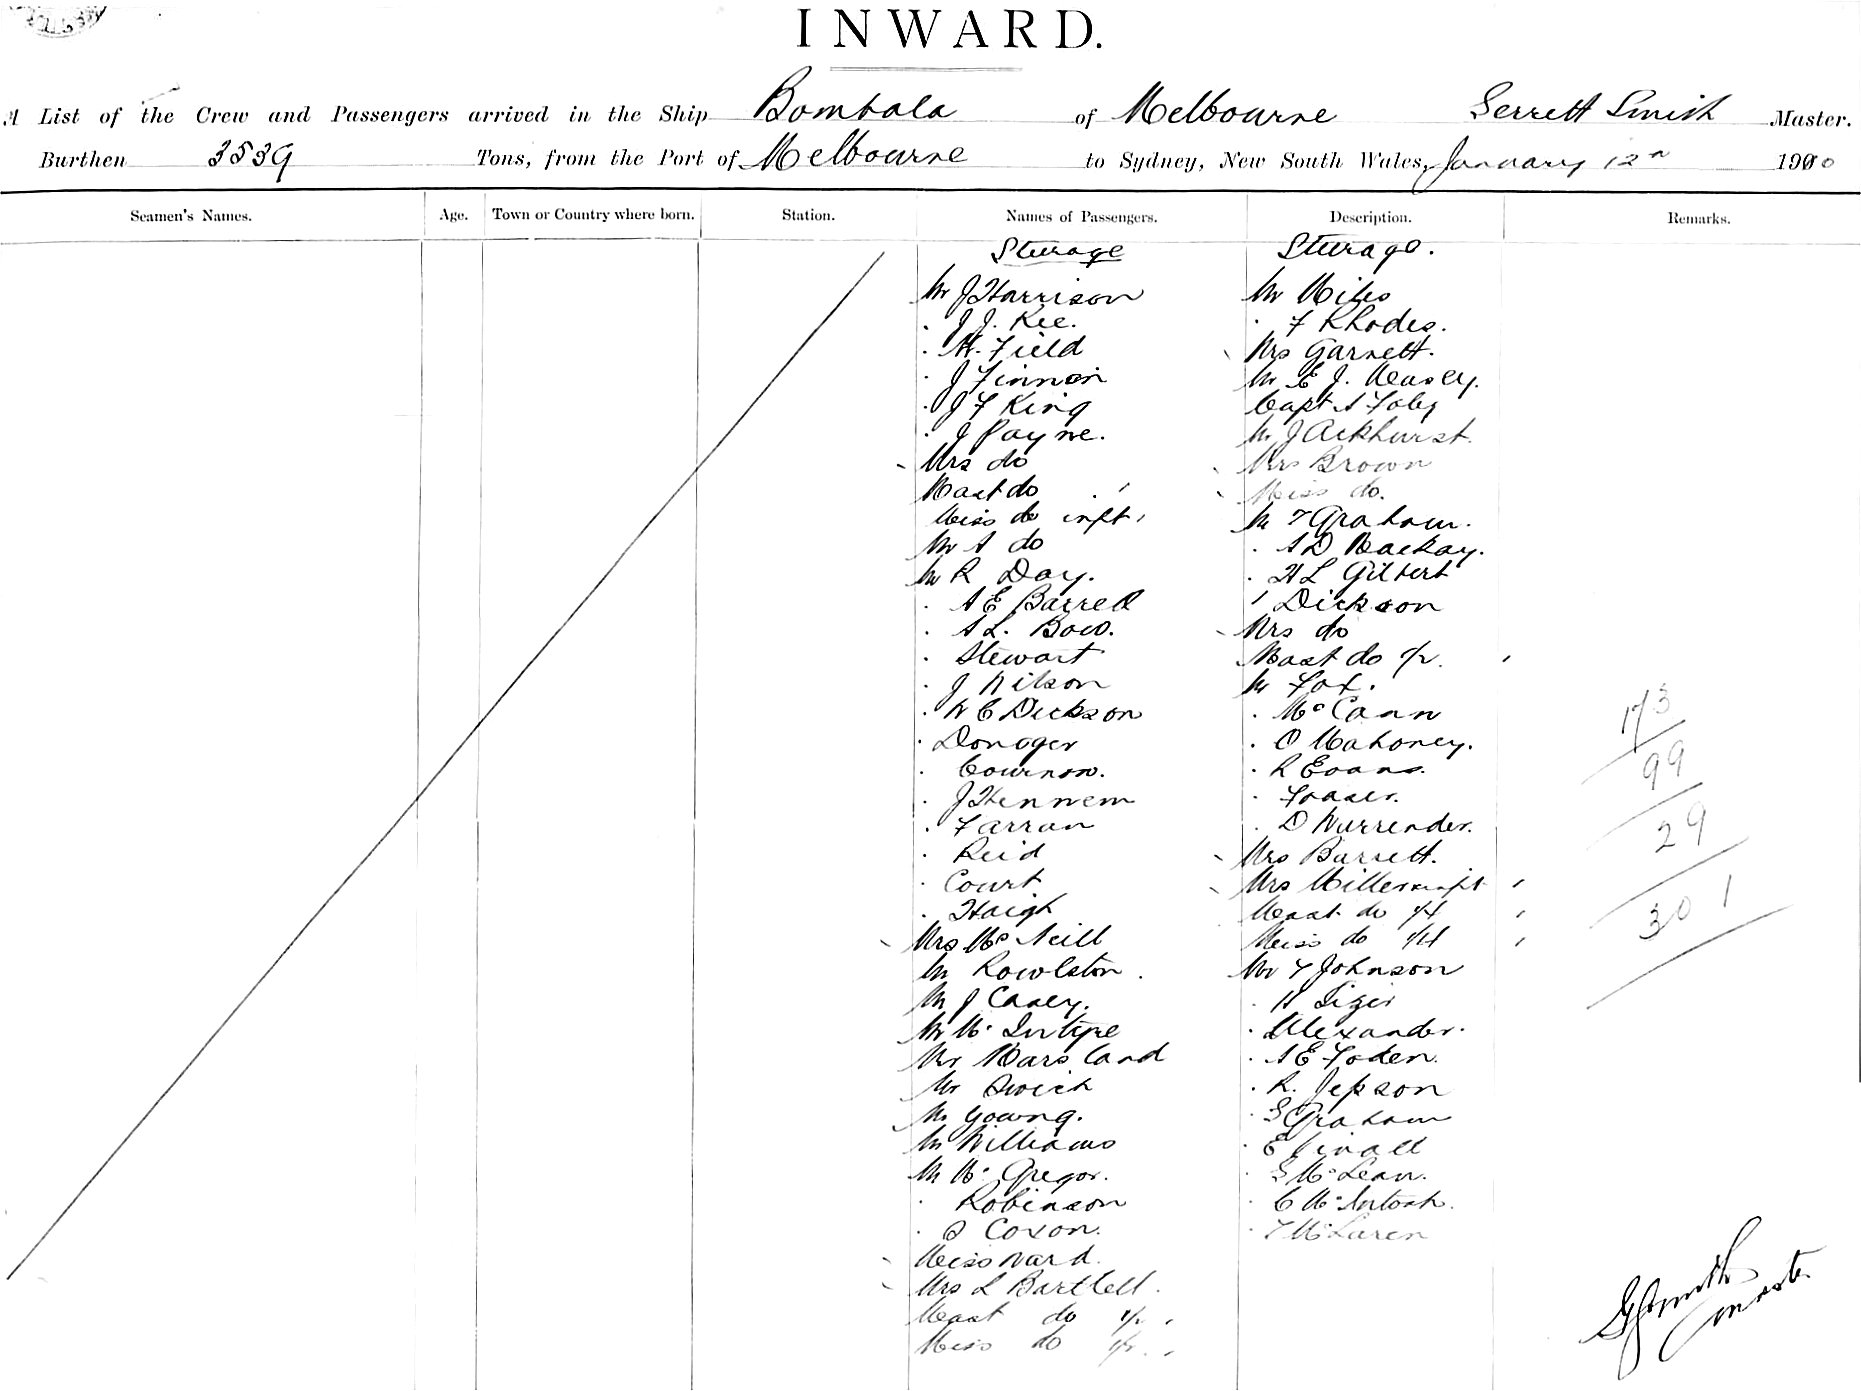 INWARD.
A List of the Crew and Passengers arrived in the Ship Bombala of Melbourne Gerrett Smith Master.
Burthen 3539 Tons, from the Port of Melbourne to Sydney, New South Wales, January 12th 1900
Seamen's Names. Age. Town or Country where born. Station. Names of Passengers. Description. Remarks.
Sturage Sturage.
Mr J Harrison Mr Miles
. J J. Kee. . F Rhodes.
. H. Field Mrs Garnett.
. J Finnen Mr E J. Measey.
. J F King Capt A Foley
. J Payne. Mr J Ackhurst.
Mrs do Mrs Brown
Mast do Miss do.
Miss do inft. Mr T Graham.
Mr A do . A D Mackay.
Mr R Day. . H L Gilbert
. A E Barrell Dickson
. A L. Bow. Mrs do
. Stewart Mast do 1/2.
. J Wilson Mr Fox.
. W C Dickson . McCann
. Donoger . O Mahoney.
. Cournow. . R Evans.
. J Hennem . Fraser.
. Farran . D Warrender.
. Reid Mrs Barrett.
. Court Mrs Miller inft
. Haigh Mast do 1/2
Mrs McNeill Miss do 1/2
Mr Rowlston. Mr T Johnson
Mr J Casey. . H
Mr McIntyre . Alexander.
Mr Marsland . A E Foden.
Mr . R. Jepson
Mr Young. . S Graham
Mr Williams . E
Mr McGregor. . S McLean.
. Robinson . C McIntosh.
. Coxon. . T McLaren
Miss Ward.
Mrs L Bartlell.
Mast do 1/2.
Miss do 1/2.
173
99
29
301
G Smith
master